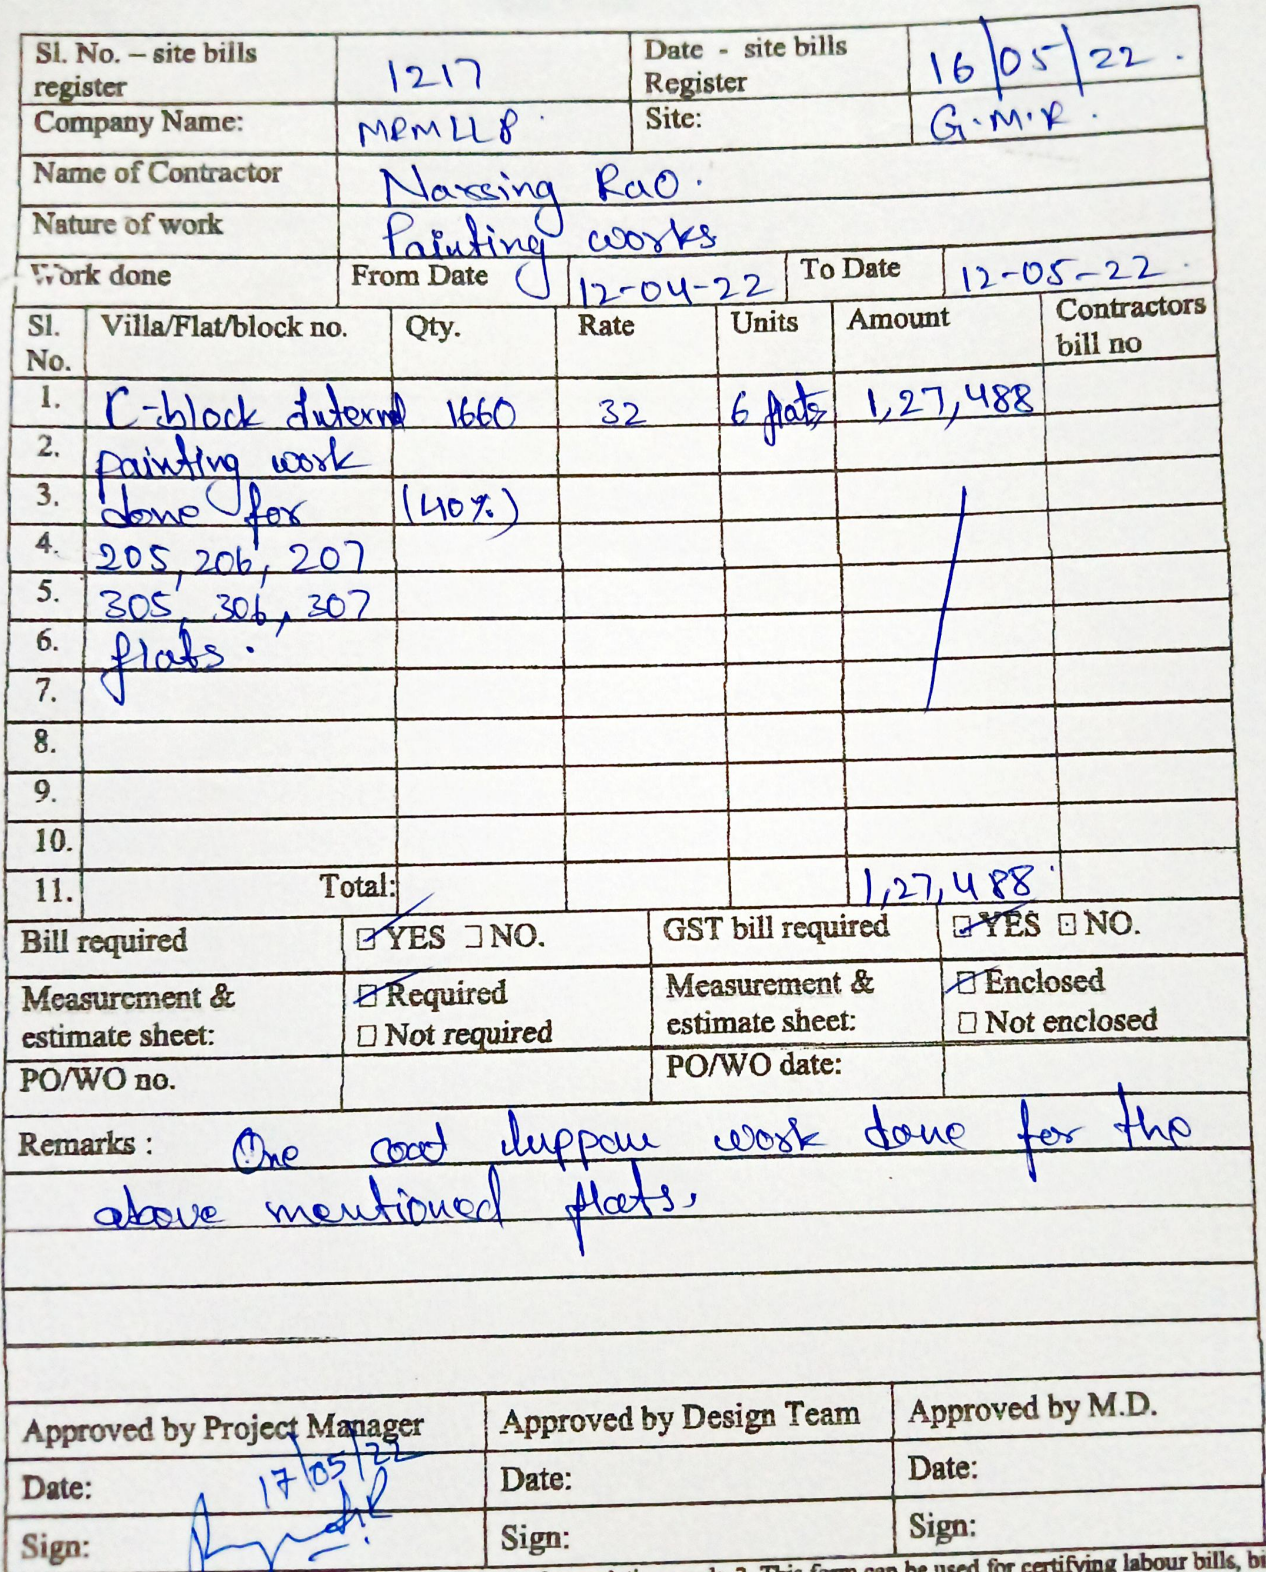 Sl. No. – site bills register 1217 Date - site bills Register 16/05/22.
Company Name: MRMLLP. Site: G.M.R.
Name of Contractor Narsing Rao.
Nature of work Painting works
Work done From Date 12-04-22 To Date 12-05-22.
Sl. No. Villa/Flat/block no. Qty. Rate Units Amount Contractors bill no
1. C-block Internal 1660 32 6 flats 1,27,488
2. painting work
3. done for (40%)
4. 205, 206, 207
5. 305, 306, 307
6. flats.
7.
8.
9.
10.
11. Total: 1,27,488
Bill required ☑ YES ☐ NO. GST bill required ☑ YES ☐ NO.
Measurement & estimate sheet: ☑ Required ☐ Not required Measurement & estimate sheet: ☑ Enclosed ☐ Not enclosed
PO/WO no. PO/WO date:
Remarks : One coat luppam work done for the
above mentioned flats.
Approved by Project Manager Approved by Design Team Approved by M.D.
Date: 17/05/22 Date: Date:
Sign: Sign: Sign:
This form can be used for certifying labour bills,